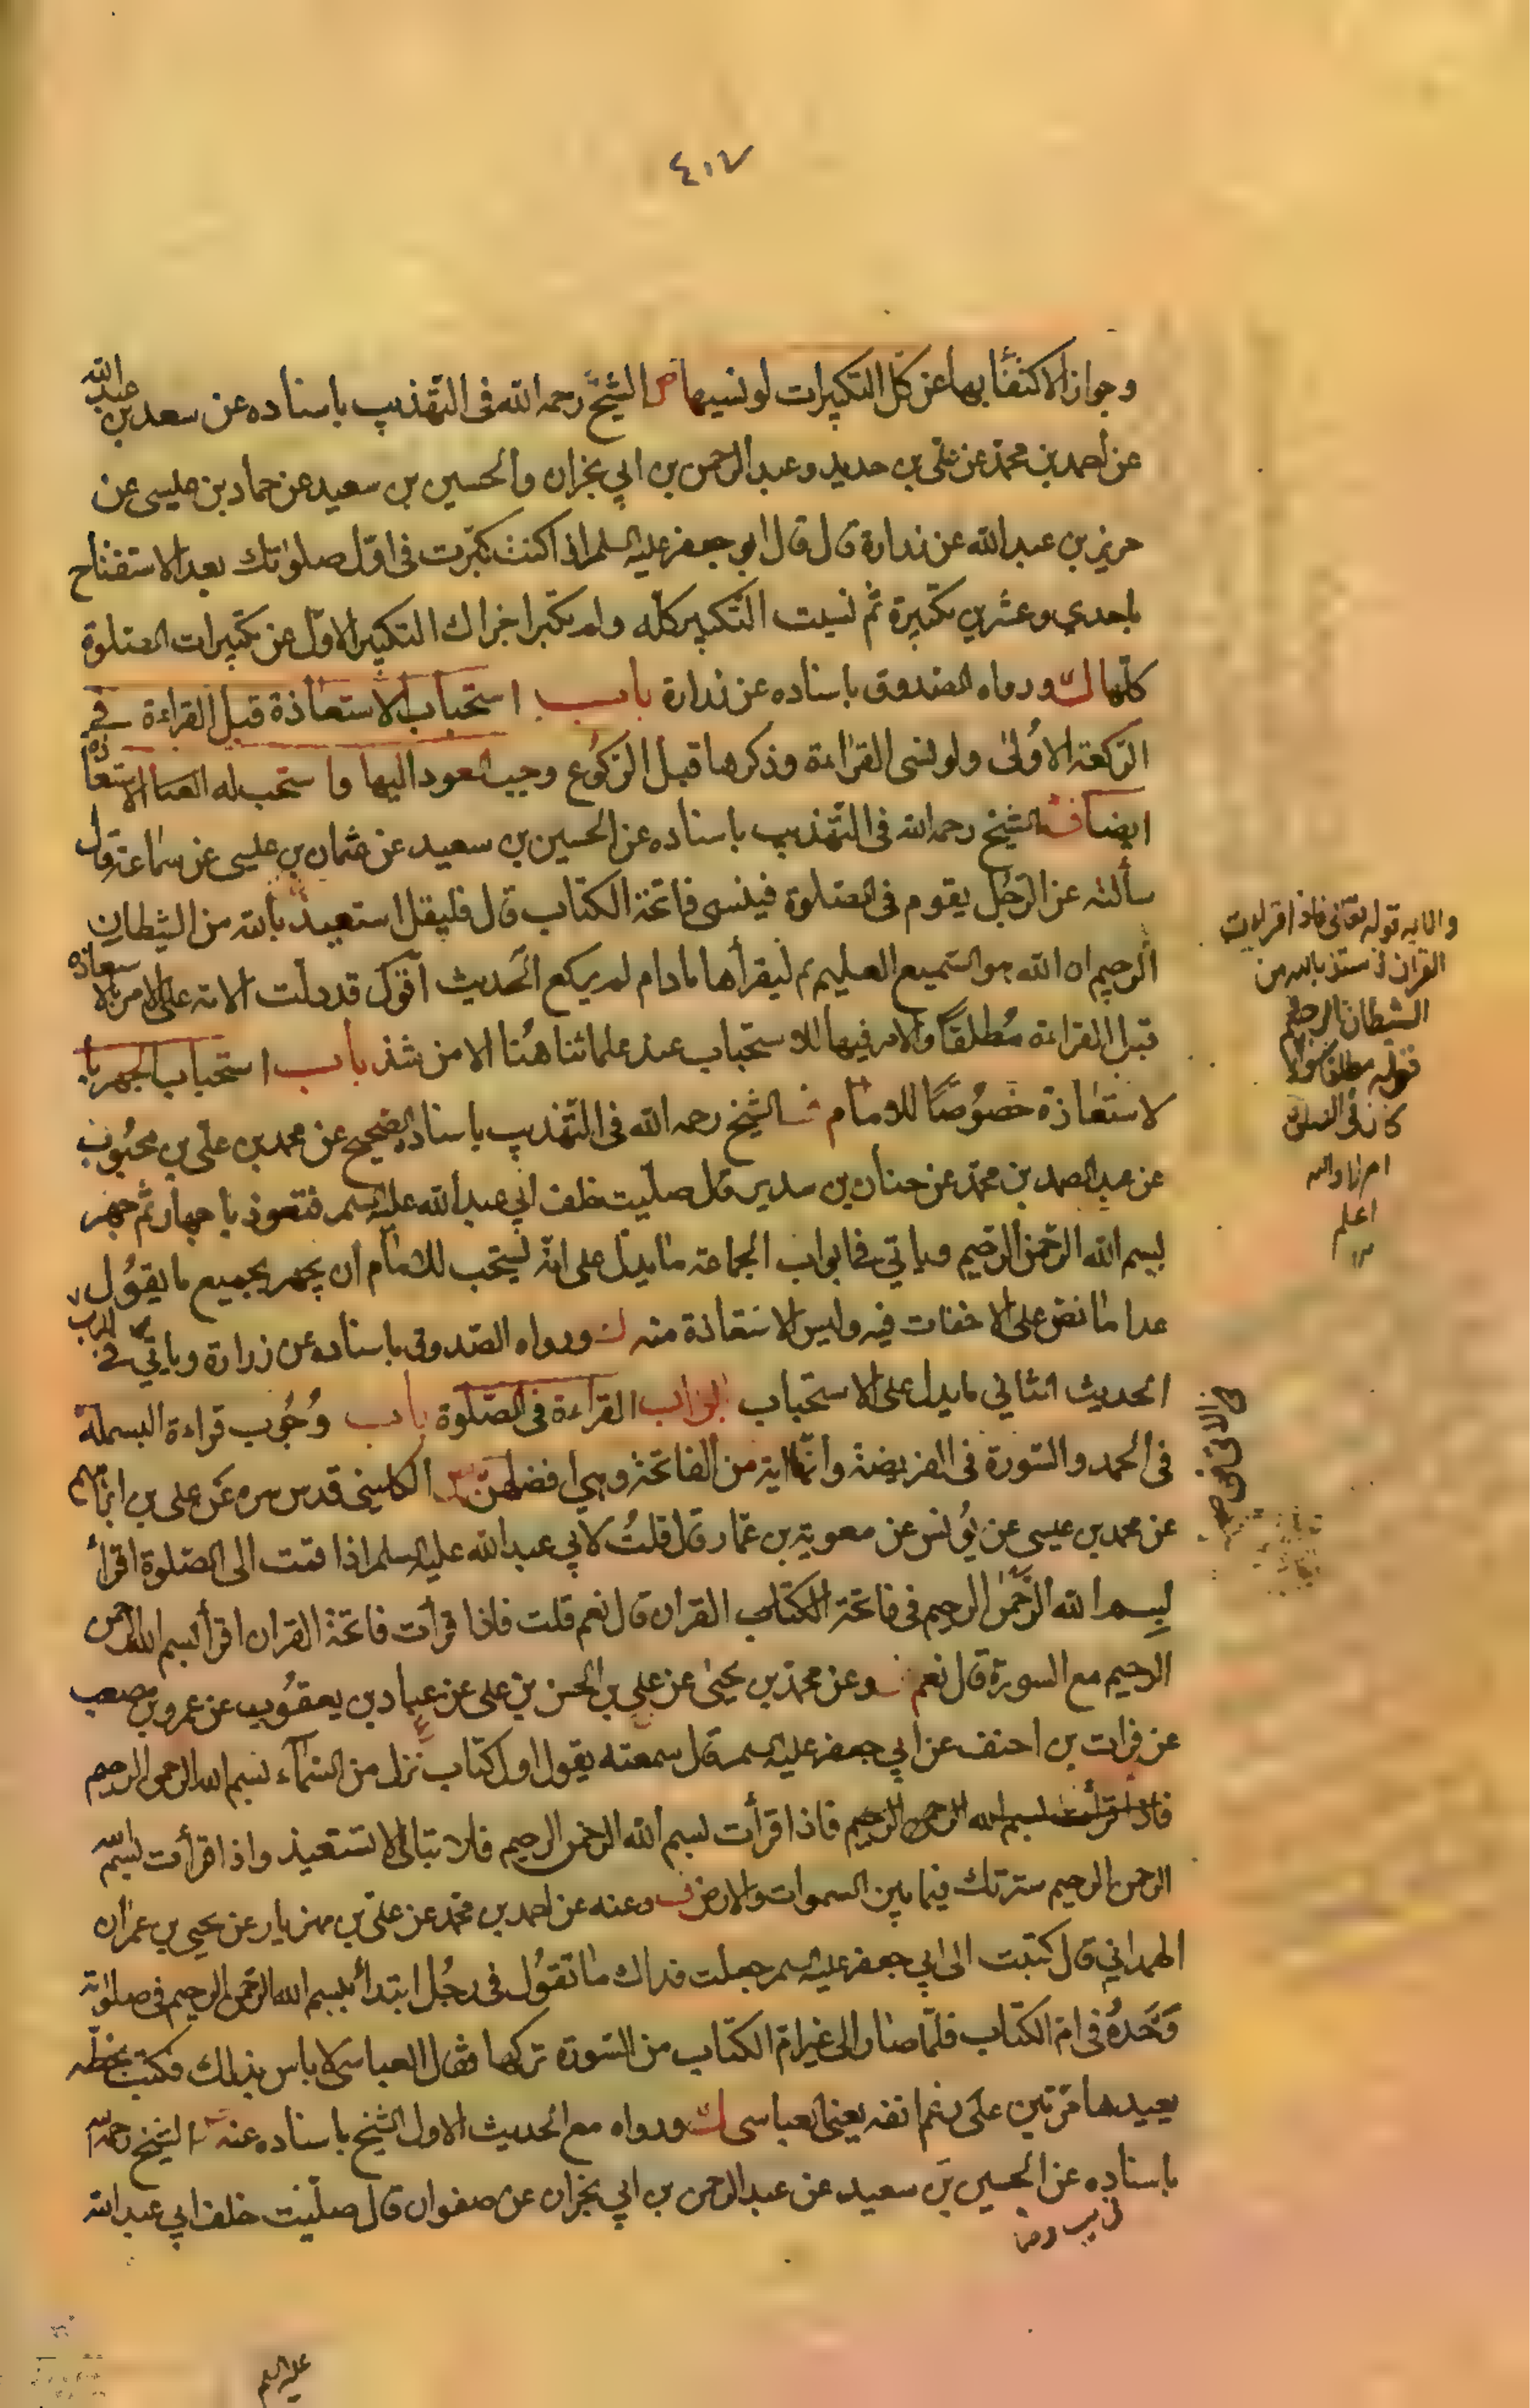 ٤١٧
وجواز الاكتفأ بها عن كل التكبيرات لو نسيها الشيخ رحمه الله فى التهذيب باسناده عن سعد بن عبد الله
عن احمد بن محمد عن على بن حديد وعبد الرحمن بن ابي نجران والحسين بن سعيد عن حماد بن عيسى عن
حريز بن عبد الله عن زرارة قال قال ابو جعفر عليه السلم اذا كنت كبّرت فى اوّل صلوتك بعد الاستفتاح
باحدي وعشرين تكبيرة ثم نسيت التكبير كله ولم تكبر اجزاك التكبير الاول عن تكبيرات الصلوة
كلها ورواه الصدوق باسناده عن زرارة باب استحباب الاستعاذة قبل القراءة في
الركعة الاولى ولو نسى القراءة وذكرها قبل الركوع وجب العود اليها واستحب له الاستعاذه
ايضا الشيخ رحمه الله فى التهذيب باسناده عن الحسين بن سعيد عن عثمان بن عيسى عن سماعة قال
سألته عن الرّجل يقوم فى الصلوة فينسى فاتحة الكتاب قال فليقل استعيذ بالله من الشيطان
الرجيم ان الله هو السميع العليم ثم ليقرأها مادام لم يركع الحديث اقول قد دلت الاية على الامر بالاستعاذه
قبل القراءة مطلقا والامر فيها للاستحباب عند علمائنا هنا الا من شذ باب استحباب الجهر با
لاستعاذة خصوصا للامام الشيخ رحمه الله فى التهذيب باسناده الصحيح عن محمد بن على بن محبوب
عن عبد الصمد بن محمد عن حنان بن سدير قال صلّيت خلف ابي عبد الله عليه السلم فتعوذ باجهار ثم جهر
ببسم الله الرّحمن الرّحيم وياتي في ابواب الجماعة ما يدل على انه يستحب للامام ان يجهر بجميع ما يقول
عدا ما نص على الاخفات فيه وليس الاستعاذة منه ورواه الصدوق باسناده عن زرارة وياتي في
الحديث الثاني ما يدل على الاستحباب ابواب القراءة فى الصّلوة باب وجوب قراءة البسملة
فى الحمد والسّورة فى الفريضة وانها اية من الفاتحة وهي افضلهن الكليني قدس سره عن على بن ابراهيم
عن محمد بن عيسى عن يونس عن معوية بن عمار قال قلت لابي عبد الله عليه السلم اذا قمت الى الصّلوة اقرأ
بسم الله الرّحمن الرحيم فى فاتحة الكتاب القران قال نعم قلت فاذا قرأت فاتحة القران اقرأ بسم الله الرحمن
الرحيم مع السورة قال نعم وعن محمد بن يحيى عن على بن الحسن بن على عن عباد بن يعقوب عن عمرو بن مصعب
عن فرات بن احنف عن ابي جعفر عليه السلم قال سمعته يقول اول كتاب نزل من السّمآء بسم الله الرحمن الرحيم
فاذا قرأت بسم الله الرحمن الرحيم فاذا قرأت بسم الله الرحمن الرحيم فلا تبالى الا تستعيذ واذا قرأت بسم الله
الرحمن الرحيم سترتك فيما بين السموات والارض وعنه عن احمد بن محمد عن على بن مهزيار عن يحيى بن عمران
الهمداني قال كتبت الى ابي جعفر عليه السلم جعلت فداك ما تقول فى رجل ابتدأ ببسم الله الرحمن الرحيم فى صلوته
وحده فى ام الكتاب فلما صار الى غير ام الكتاب من السورة تركها فقال العباسى لا باس بذلك فكتب بخطه
يعيدها مرتين على رغم انفه يعني العباسى ورواه مع الحديث الاول الشيخ باسناده عنه الشيخ رحمه الله
باسناده عن الحسين بن سعيد عن عبد الرحمن بن ابي نجران عن صفوان قال صليت خلف ابي عبد الله
والايه قوله تعالى فاذا قرات
القران فاستعذ بالله من
الشيطان الرجيم
قوله مطلقا سواء
كان فى الصلوة
ام لا والله
اعلم
عليه السلم